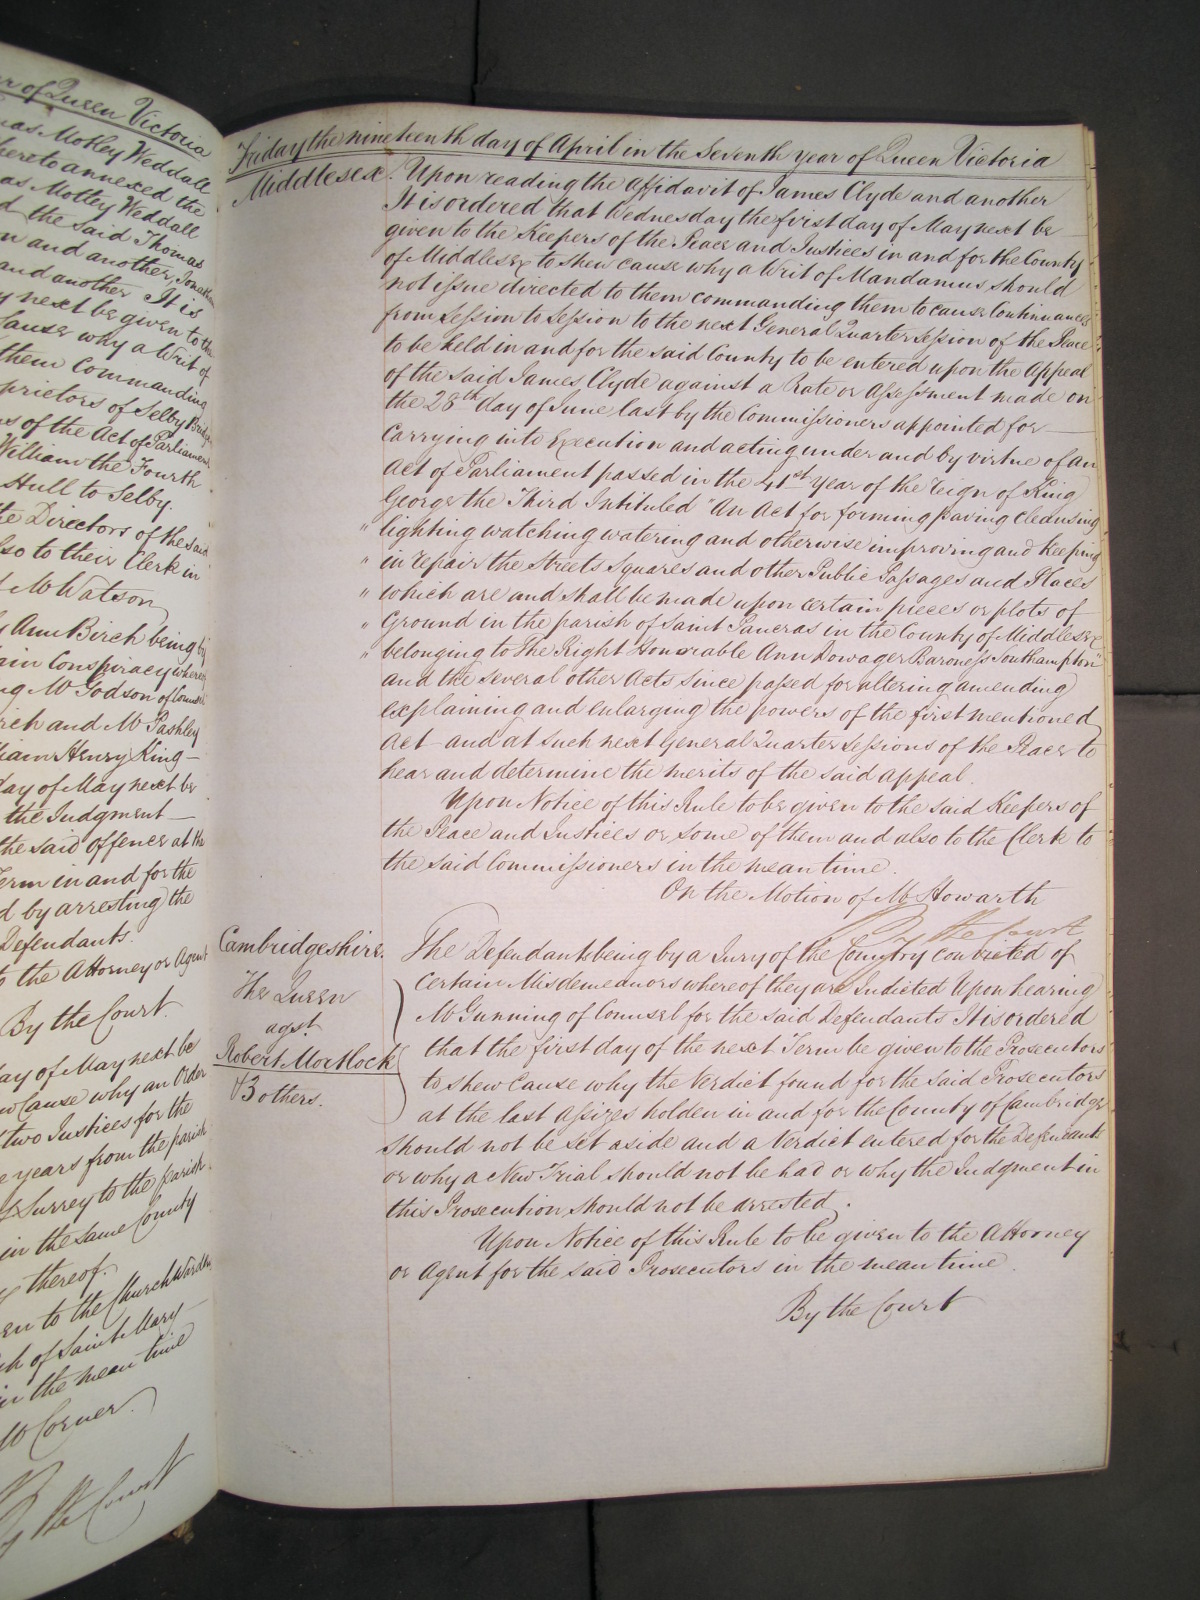 er of Queen Victoria
mas Motley Weddall
hereto annexed the
as Motley Weddall
d the said Thomas
on and another, Jonathan
and another It is
y next be given to the
Cause why a Writ of
them Commanding
prietors of Selby Bridge
ns of the Act of Parliament
William the Fourth
Hull to Selby.
te Directors of the said
lso to their Clerk in
Mr Watson
y Ann Birch being by
ain Conspiracy where
ng Mr Godson of Counsel
rch and Mr Pashley
liam Henry King
day of May next be
the Judgment
the said offence at the
Term in and for the
d by arresting the
Defendants.
to the Attorney or Agent
By the Court.
day of May next be
ew Cause why an Order
two Justices for the
e years from the parish
of Surrey to the parish
in the same County
thereof.
en to the Church Wardens
sh of Saint Mary
in the mean time
Mr Corner.
By the Court
Friday the nineteenth day of April in the Seventh year of Queen Victoria
Middlesex. Upon reading the Affidavit of James Clyde and another
It is ordered that Wednesday the first day of May next be
given to the Keepers of the Peace and Justices in and for the County
of Middlesex to shew cause why a Writ of Mandamus should
not issue directed to them commanding them to cause Continuances
from Session to Session to the next General Quarter Session of the Peace
to be held in and for the said County to be entered upon the Appeal
of the said James Clyde against a Rate or Assessment made on
the 28th day of June last by the Commissioners appointed for
Carrying into Execution and acting under and by virtue of an
Act of Parliament passed in the 41st year of the reign of King
George the Third Intituled "An Act for forming paving cleansing
" lighting watching watering and otherwise improving and keeping
" in repair the Streets Squares and other Public Passages and Places
" which are and shall be made upon certain pieces or plots of
" Ground in the parish of Saint Pancras in the County of Middlesex
" belonging to The Right Honorable Ann Dowager Baroness Southampton"
and the several other Acts since passed for altering amending
explaining and enlarging the powers of the first mentioned
Act and at such next General Quarter Sessions of the Peace to
hear and determine the merits of the said appeal.
Upon Notice of this Rule to be given to the said Keepers of
the Peace and Justices or some of them and also to the Clerk to
the said Commissioners in the mean time.
On the Motion of Mr Howarth
By the Court
Cambridgeshire. The Defendants being by a Jury of the Country convicted of
certain Misdemeanors whereof they are Indicted Upon hearing
The Queen
Mr Gunning of Counsel for the said Defendants It is ordered
agst
that the first day of the next Term be given to the Prosecutors
Robert Mortlock
to shew Cause why the Verdict found for the said Prosecutors
& 3 others.
at the last Assizes holden in and for the County of Cambridge
should not be set aside and a Verdict entered for the Defendants
or why a New Trial should not be had or why the Judgment in
this Prosecution should not be arrested.
Upon Notice of this Rule to be given to the Attorney
or Agent for the said Prosecutors in the mean time.
By the Court